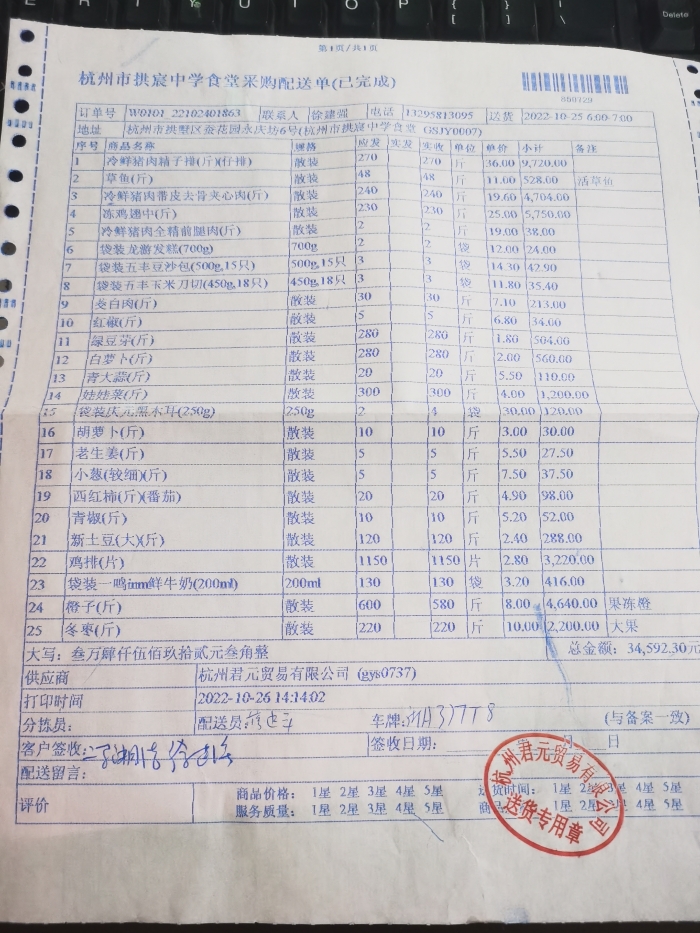 第1页/共1页
杭州市拱宸中学食堂采购配送单(已完成)
860129
订单号 W0101_22102401863 联系人 徐建强 电话 13295813095 送货 2022-10-25 6:00-7:00
地址 杭州市拱墅区蚕花园永庆坊6号(杭州市拱宸中学食堂 GSJY0007)
序号 商品名称 规格 应发 实发 实收 单位 单价 小计 备注
1 冷鲜猪肉精子排(斤)(仔排) 散装 270 270 斤 36.00 9,720.00
2 草鱼(斤) 散装 48 48 斤 11.00 528.00 活草鱼
3 冷鲜猪肉带皮去骨夹心肉(斤) 散装 240 240 斤 19.60 4,704.00
4 冻鸡翅中(斤) 散装 230 230 斤 25.00 5,750.00
5 冷鲜猪肉全精前腿肉(斤) 散装 2 2 斤 19.00 38.00
6 袋装龙游发糕(700g) 700g 2 2 袋 12.00 24.00
7 袋装五丰豆沙包(500g,15只) 500g,15只 3 3 袋 14.30 42.90
8 袋装五丰玉米刀切(450g,18只) 450g,18只 3 3 袋 11.80 35.40
9 茭白肉(斤) 散装 30 30 斤 7.10 213.00
10 红椒(斤) 散装 5 5 斤 6.80 34.00
11 绿豆芽(斤) 散装 280 280 斤 1.80 504.00
12 白萝卜(斤) 散装 280 280 斤 2.00 560.00
13 青大蒜(斤) 散装 20 20 斤 5.50 110.00
14 娃娃菜(斤) 散装 300 300 斤 4.00 1,200.00
15 袋装庆元黑木耳(250g) 250g 2 4 袋 30.00 120.00
16 胡萝卜(斤) 散装 10 10 斤 3.00 30.00
17 老生姜(斤) 散装 5 5 斤 5.50 27.50
18 小葱(较细)(斤) 散装 5 5 斤 7.50 37.50
19 西红柿(斤)(番茄) 散装 20 20 斤 4.90 98.00
20 青椒(斤) 散装 10 10 斤 5.20 52.00
21 新土豆(大)(斤) 散装 120 120 斤 2.40 288.00
22 鸡排(片) 散装 1150 1150 片 2.80 3,220.00
23 袋装一鸣inm鲜牛奶(200ml) 200ml 130 130 袋 3.20 416.00
24 橙子(斤) 散装 600 580 斤 8.00 4,640.00 果冻橙
25 冬枣(斤) 散装 220 220 斤 10.00 2,200.00 大果
大写: 叁万肆仟伍佰玖拾贰元叁角整 总金额: 34,592.30元
供应商 杭州君元贸易有限公司 (gys0737)
打印时间 2022-10-26 14:14:02
分拣员: 配送员: 车牌:浙A377T8 (与备案一致)
客户签收: 签收日期: 月 日
配送留言:
评价 商品价格: 1星 2星 3星 4星 5星 送货时间: 1星 2星 3星 4星 5星
服务质量: 1星 2星 3星 4星 5星 商品 1星 2星 3星 4星 5星
杭州君元贸易有限公司
送货专用章